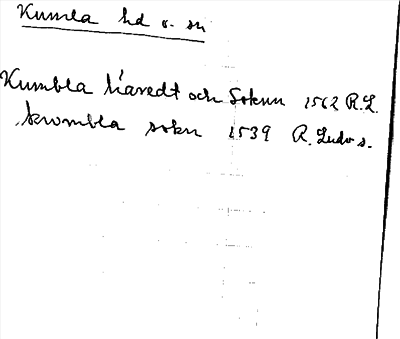 Kumla hd o. sn
Kumbla häredt och Soknn 1562 R.L.
krombla sokn 1539 R. Ludv s.